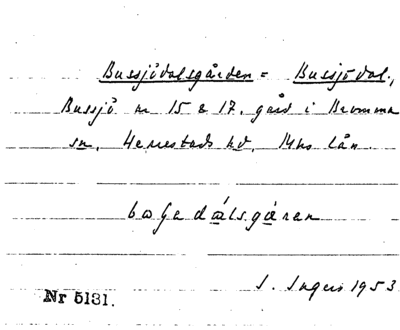 Bussjödalsgården = Bussjödal.,
Bussjö nr 15 & 17, gård i Bromma
sn, Herrestads hd. Mhs län
I. Ingers 1953
Nr 5131.